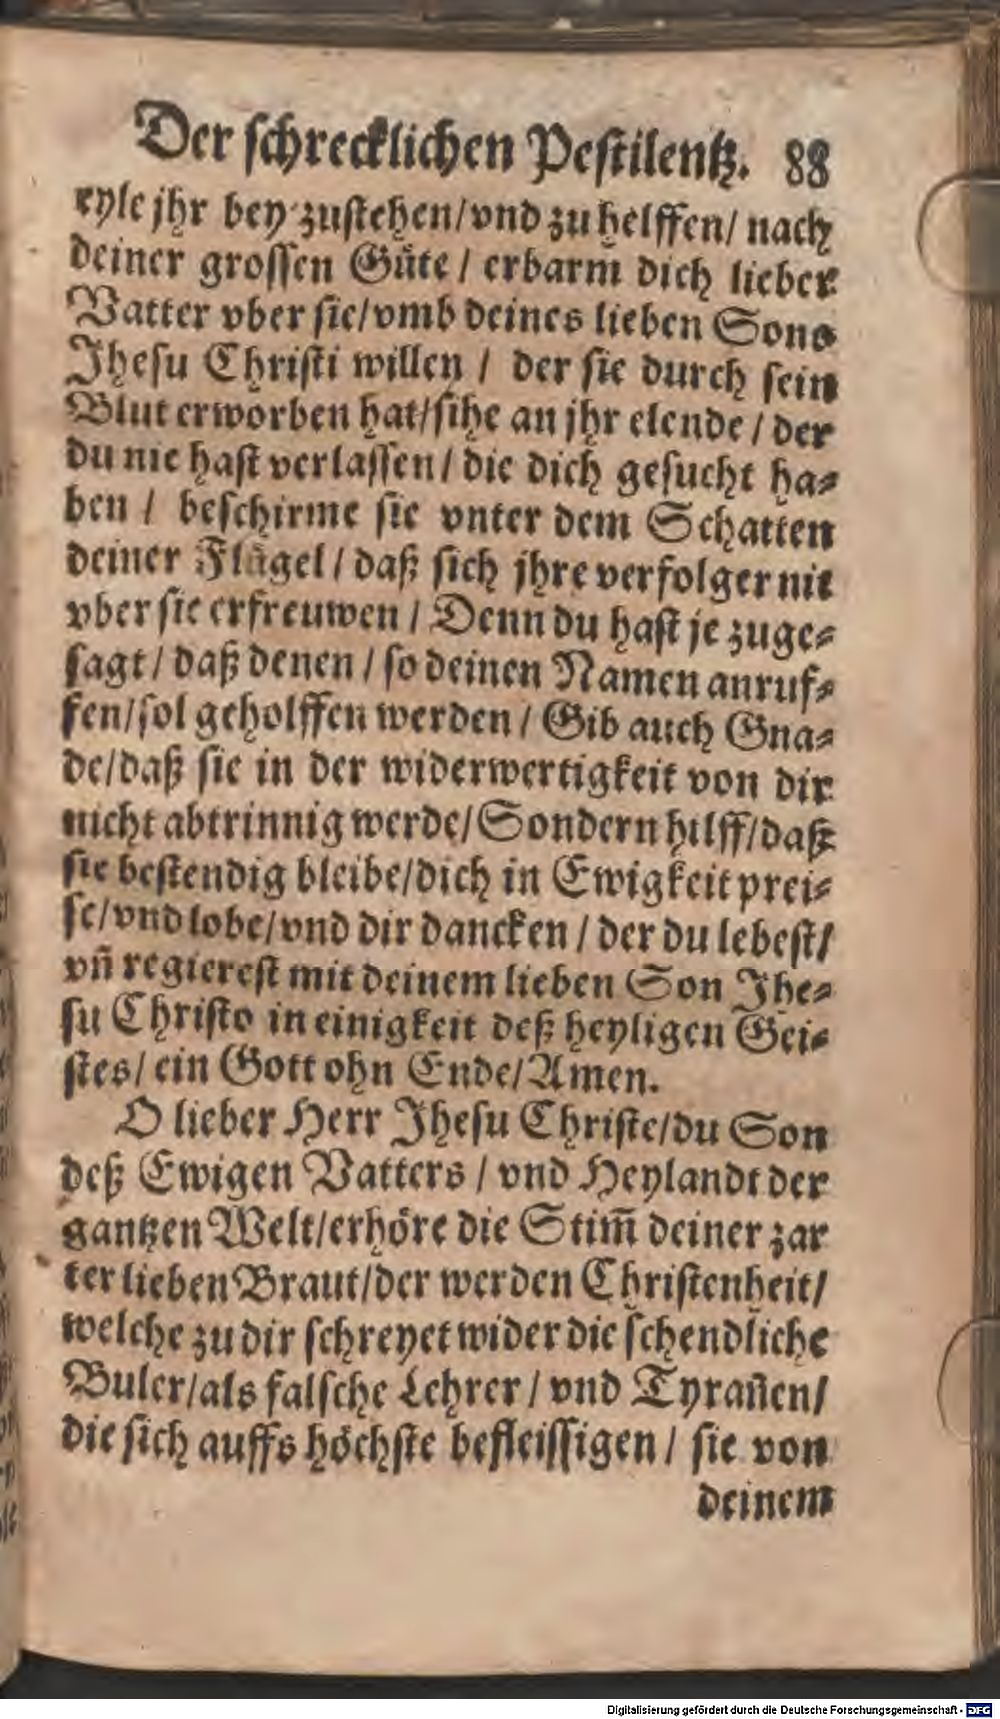 Der schrecklichen Pestilentz. 88
eyle jhr bey zustehen/vnd zu helffen/ nach
deiner grossen Güte / erbarm dich lieber
Vatter vber sie/vmb deines lieben Sons
Jhesu Christi willen / der sie durch sein
Blut erworben hat/sihe an jhr elende / der
du nie hast verlassen/ die dich gesucht ha-
ben / beschirme sie vnter dem Schatten
deiner Flügel / daß sich jhre verfolger nit
vber sie erfreuwen / Denn du hast je zuge-
sagt/ daß denen / so deinen Namen anruf-
fen/sol geholffen werden / Gib auch Gna-
de/daß sie in der widerwertigkeit von dir
nicht abtrinnig werde/Sondern hilff/daß
sie bestendig bleibe/dich in Ewigkeit prei-
se/vnd lobe/vnd dir dancken / der du lebest/
vn̄ regierest mit deinem lieben Son Jhe-
su Christo in einigkeit deß heyligen Gei-
stes/ ein Gott ohn Ende/Amen.
O lieber Herr Jhesu Christe/du Son
deß Ewigen Vatters / vnd Heylandt der
gantzen Welt/erhöre die Stim̄ deiner zar
ter lieben Braut/der werden Christenheit/
welche zu dir schreyet wider die schendliche
Buler/als falsche Lehrer / vnd Tyran̄en/
die sich auffs höchste befleissigen / sie von
deinem
Digitalisierung gefördert durch die Deutsche Forschungsgemeinschaft - DFG